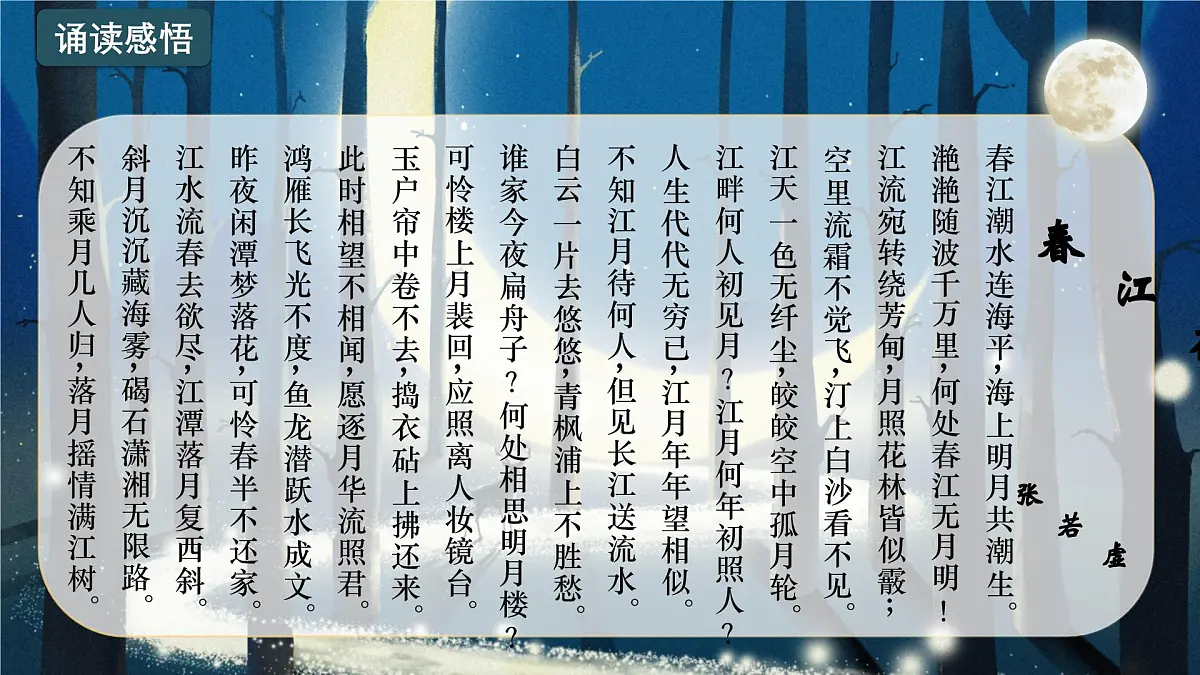 诵读感悟
春江
张若虚
春江潮水连海平,海上明月共潮生。
滟滟随波千万里,何处春江无月明!
江流宛转绕芳甸,月照花林皆似霰;
空里流霜不觉飞,汀上白沙看不见。
江天一色无纤尘,皎皎空中孤月轮。
江畔何人初见月?江月何年初照人?
人生代代无穷已,江月年年望相似。
不知江月待何人,但见长江送流水。
白云一片去悠悠,青枫浦上不胜愁。
谁家今夜扁舟子?何处相思明月楼?
可怜楼上月裴回,应照离人妆镜台。
玉户帘中卷不去,捣衣砧上拂还来。
此时相望不相闻,愿逐月华流照君。
鸿雁长飞光不度,鱼龙潜跃水成文。
昨夜闲潭梦落花,可怜春半不还家。
江水流春去欲尽,江潭落月复西斜。
斜月沉沉藏海雾,碣石潇湘无限路。
不知乘月几人归,落月摇情满江树。